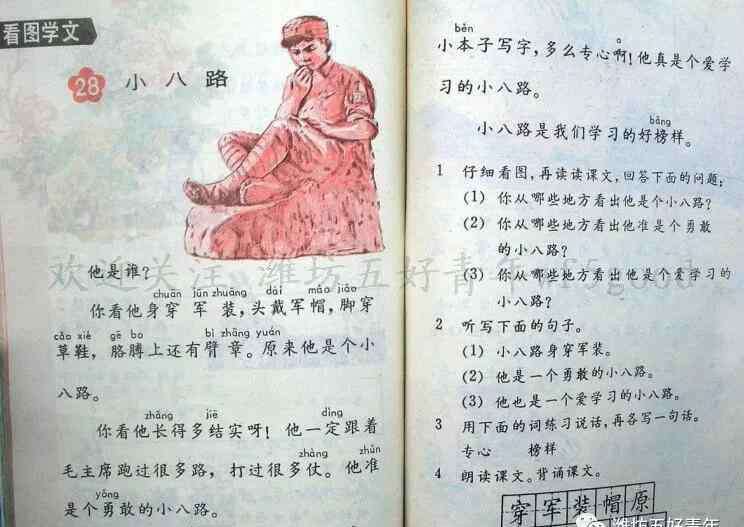 看图学文
28 小八路
他是谁？
chuān jūn zhuāng dài mào jiǎo
你看他身穿军装，头戴军帽，脚穿
cǎo xié gē bo bì zhāng yuán
草鞋，胳膊上还有臂章。原来他是个小
八路。
zhǎng jiē dìng
你看他长得多结实呀！他一定跟着
zhàng zhǔn
毛主席跑过很多路，打过很多仗。他准
yǒng
是个勇敢的小八路。
běn
小本子写字，多么专心啊！他真是个爱学
习的小八路。
bǎng
小八路是我们学习的好榜样。
1 仔细看图，再读读课文，回答下面的问题：
(1) 你从哪些地方看出他是个小八路？
(2) 你从哪些地方看出他准是个勇敢
的小八路？
(3) 你从哪些地方看出他是个爱学习的
小八路？
2 听写下面的句子。
(1) 小八路身穿军装。
(2) 他是一个勇敢的小八路。
(3) 他也是一个爱学习的小八路。
3 用下面的词练习说话，再各写一句话。
专心 榜样
4 朗读课文。背诵课文。
穿军装帽原
欢迎关注 潍坊五好青年
潍坊五好青年